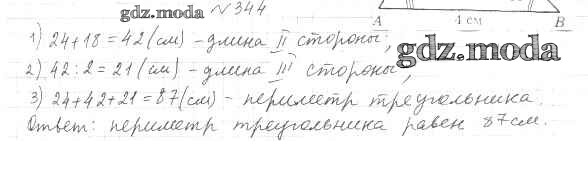 gdz.moda №344
A 4 см B
1) 24+18=42(см) - длина II стороны;
gdz.moda
2) 42:2=21(см) - длина III стороны;
3) 24+42+21=87(см) - периметр треугольника.
Ответ: периметр треугольника равен 87см.